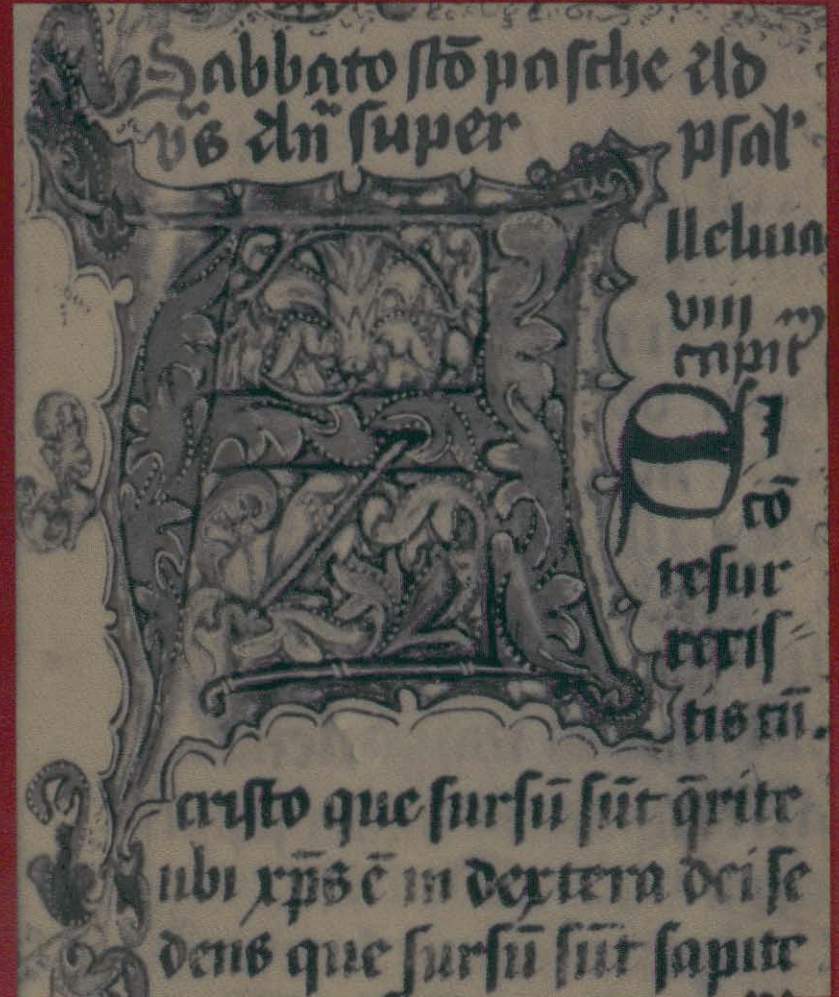 Sabbato sctō pasche Ad
vs̄ An̄ super psal'
lleluia
viii m
capit'
Si
cō
resur
rexis
tis cū.
cristo que sursū sūt q̄rite
ubi xp̄s ē in dextera dei se
dens que sursū sūt sapite